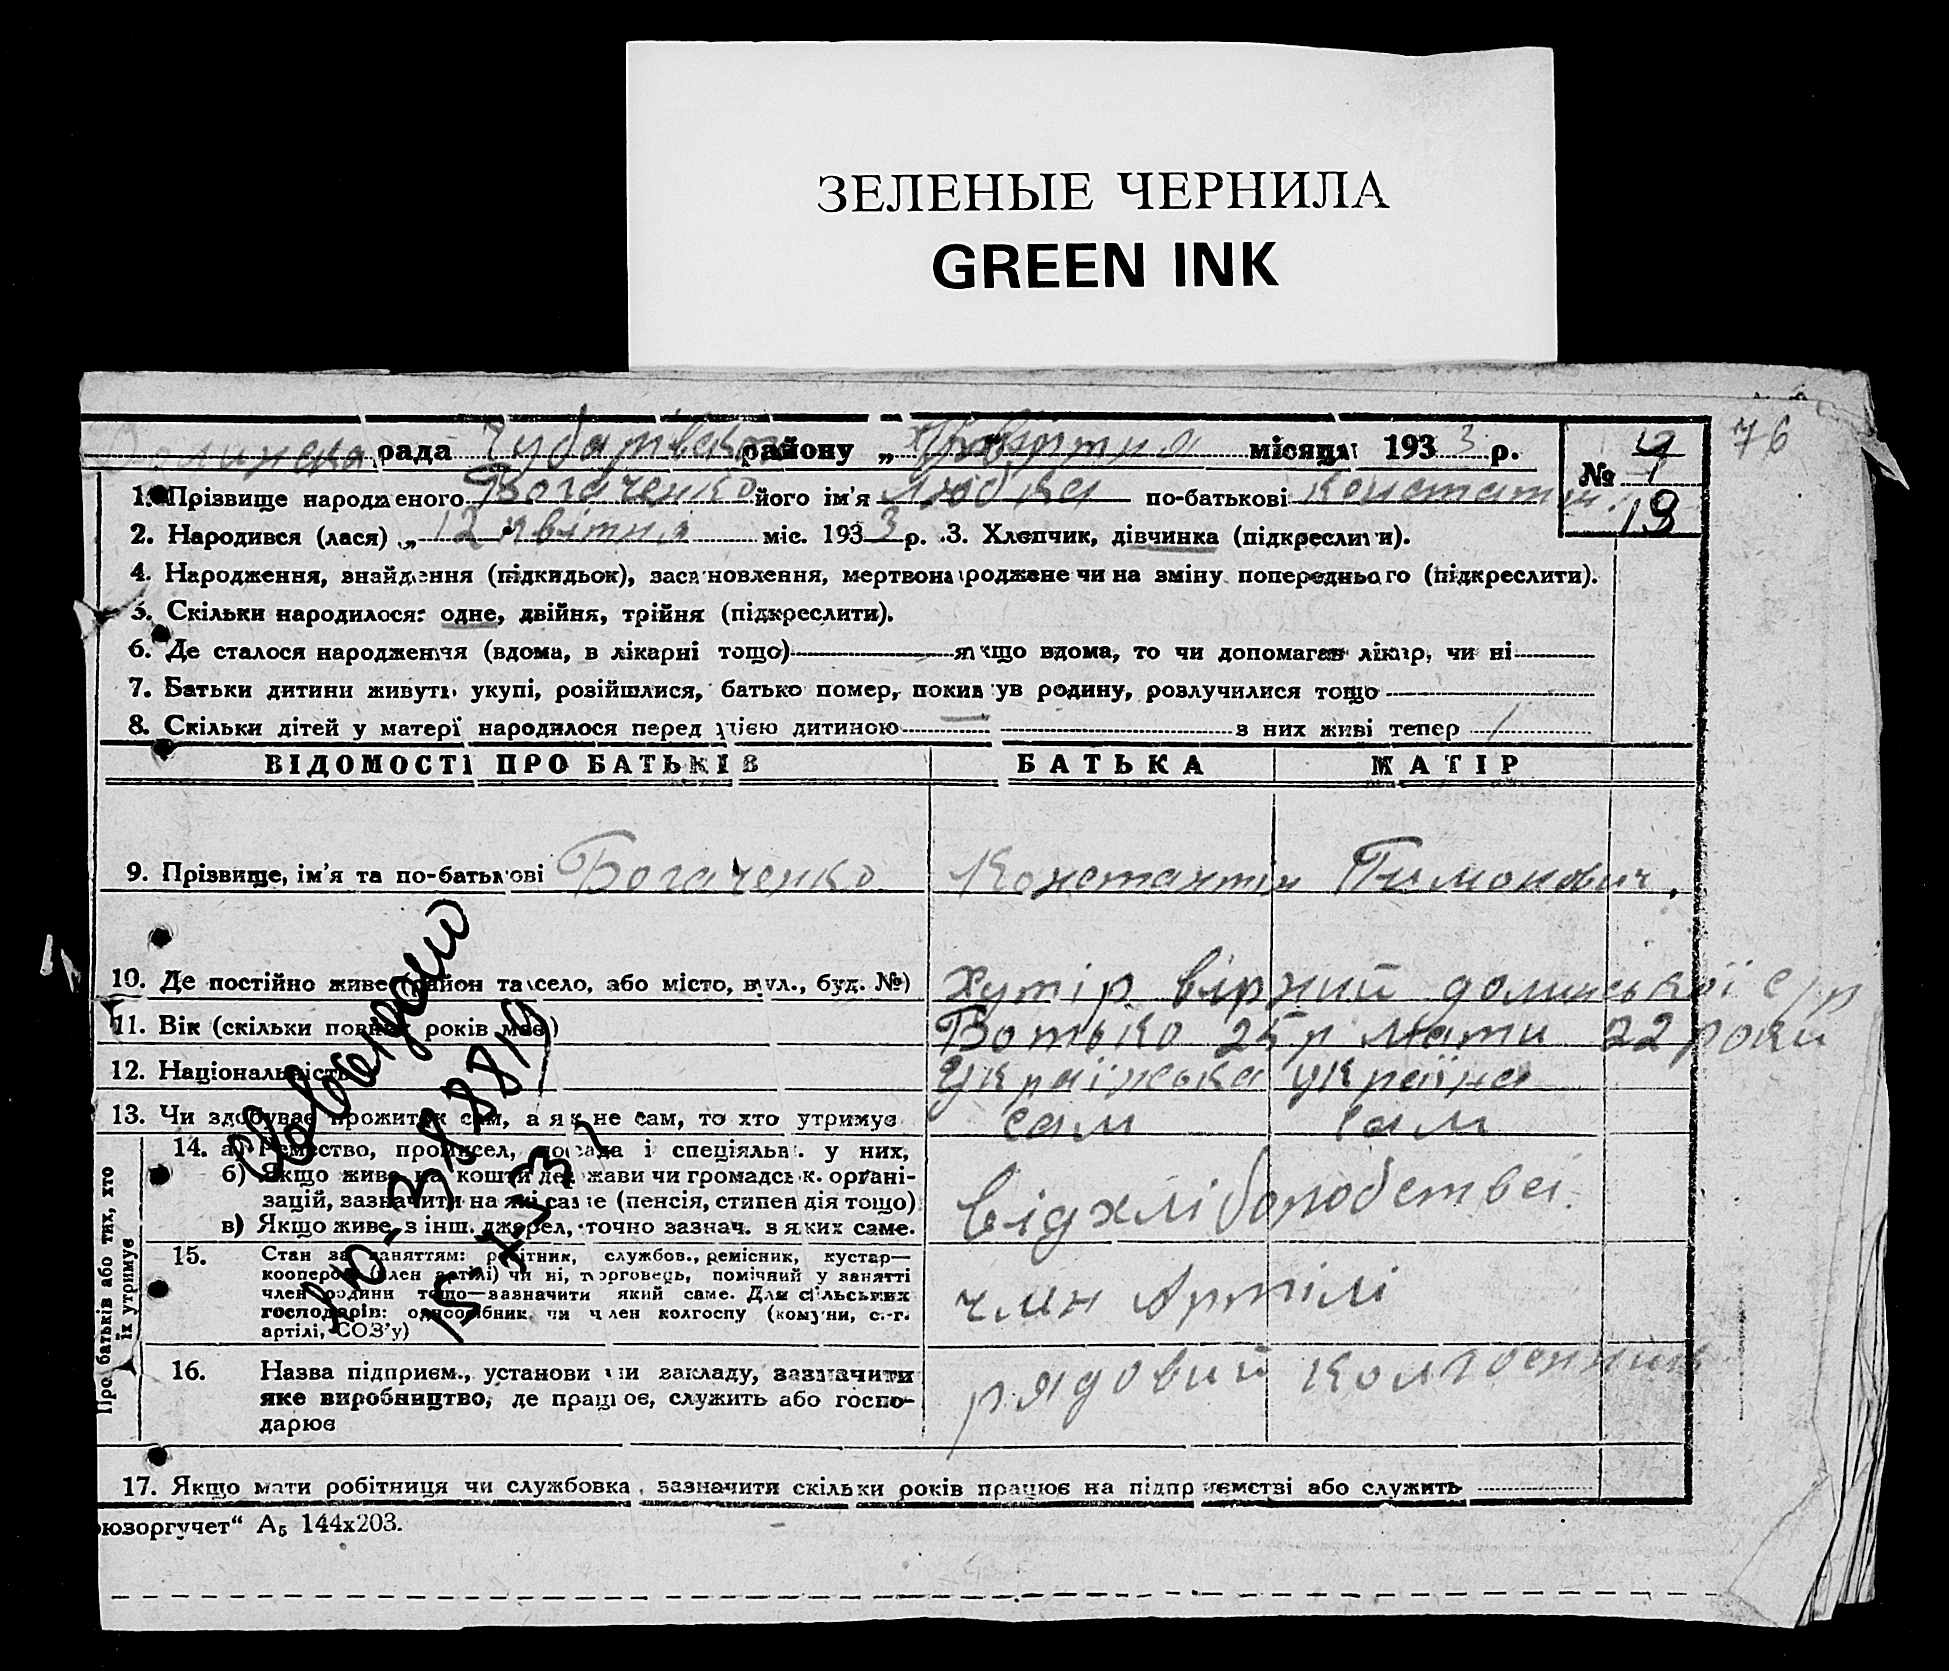 ЗЕЛЕНЫЕ ЧЕРНИЛА
GREEN INK
76
Долинська рада Чубарівськ району „ Квітня місяця 1933 р.
№ 1
19
1. Прізвище народженого Богаченко його ім'я Любка по-батькові Константин.
2. Народився (лася) „12 квітня міс. 1933 р. 3. Хлопчик, дівчинка (підкреслити).
4. Народження, знайдення (підкидьок), засвновлення, мертвонароджене чи на зміну попереднього (підкреслити).
5. Скільки народилося: одне, двійня, трійня (підкреслити).
6. Де сталося народження (вдома, в лікарні тощо) якщо вдома, то чи допомагав лікар, чи ні
7. Батьки дитини живуть укупі, розійшлися, батько помер, покинув родину, розлучилися тощо
8. Скільки дітей у матері народилося перед цією дитиною — з них живі тепер 1
ВІДОМОСТІ ПРО БАТЬКІВ БАТЬКА МАТІР
9. Прізвище, ім'я та по-батькові Богаченко Константін Пимонович.
10. Де постійно живе (район та село, або місто, вул., буд. №) Хутір вірний долинської с/р
11. Вік (скільки повних років має)Ботько 25 р мати 22 роки
12. Національність Українська україна
13. Чи здобуває прожиток сам, а як не сам, то хто утримує сам сам
Про батьків або тих, хто їх утримує
14. а) Ремество, промисел, посада і спеціяльн. у них,
б) Якщо живе на кошти держави чи громадськ. органі-
зацій, зазначити на які саме (пенсія, стипендія тощо)
в) Якщо живе з інш. джерел, точно зазнач. з яких саме.
від хліборобства
15. Стан за заняттям: робітник, службов., ремісник, кустар—
кооперов. (член артілі) чи ні, торговець, помічний у занятті
член родини тощо—зазначити який саме. Для сільських
господарів: одноосібник чи член колгоспу (комуни, с.-г.
артілі, СОЗ'у)
член Артілі
16. Назва підприєм., установи чи закладу, зазначити
яке виробництво, де працює, служить або госпо-
дарює
рядовий колгоспник
17. Якщо мати робітниця чи службовка, зазначити скільки років працює на підприємстві або служить
юзоргучет“ А₅ 144х203.